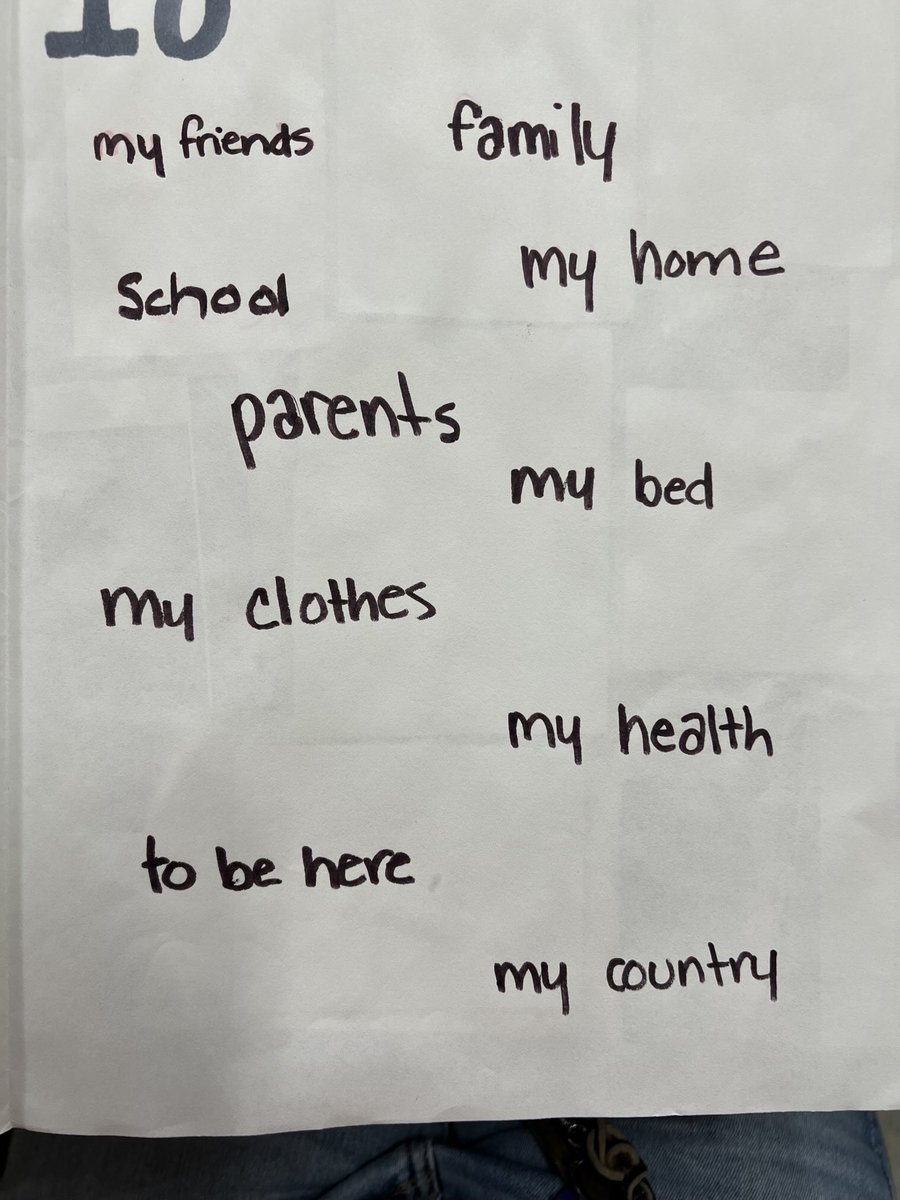 10
my friends
family
my home
school
parents
my bed
my clothes
my health
to be here
my country